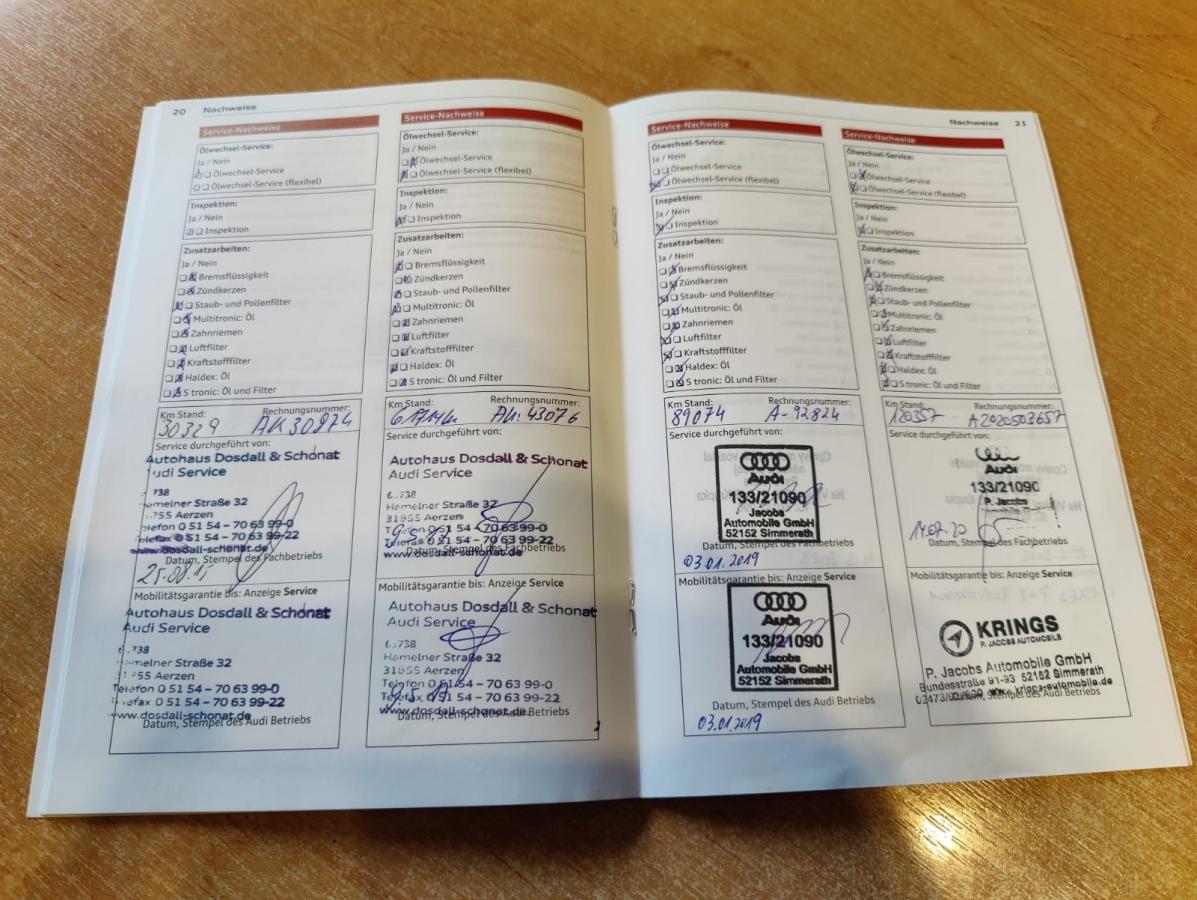 20 Nachweise
Service-Nachweise
Ölwechsel-Service:
Ja / Nein
Ölwechsel-Service
Ölwechsel-Service (flexibel)
Inspektion:
Ja / Nein
Inspektion
Zusatzarbeiten:
Ja / Nein
Bremsflüssigkeit
Zündkerzen
Staub- und Pollenfilter
Multitronic: Öl
Zahnriemen
Luftfilter
Kraftstofffilter
Haldex: Öl
S tronic: Öl und Filter
Km Stand: Rechnungsnummer:
30329 AU 30874
Service durchgeführt von:
Autohaus Dosdall & Schonat
Audi Service
738
Hamelner Straße 32
Aerzen
Telefon 0 51 54 – 70 63 99-0
Telefax 0 51 54 – 70 63 99-22
www.dosdall-schonat.de
Datum, Stempel des Fachbetriebs
25.08.15
Mobilitätsgarantie bis: Anzeige Service
Autohaus Dosdall & Schonat
Audi Service
738
Hamelner Straße 32
31855 Aerzen
Telefon 0 51 54 – 70 63 99-0
Telefax 0 51 54 – 70 63 99-22
www.dosdall-schonat.de
Datum, Stempel des Audi Betriebs
Service-Nachweise
Ölwechsel-Service:
Ja / Nein
Ölwechsel-Service
Ölwechsel-Service (flexibel)
Inspektion:
Ja / Nein
Inspektion
Zusatzarbeiten:
Ja / Nein
Bremsflüssigkeit
Zündkerzen
Staub- und Pollenfilter
Multitronic: Öl
Zahnriemen
Luftfilter
Kraftstofffilter
Haldex: Öl
S tronic: Öl und Filter
Km Stand: Rechnungsnummer:
AU: 43076
Service durchgeführt von:
Autohaus Dosdall & Schonat
Audi Service
738
Hamelner Straße 32
31855 Aerzen
Telefon 0 51 54 – 70 63 99-0
Telefax 0 51 54 – 70 63 99-22
www.dosdall-schonat.de
Datum, Stempel des Fachbetriebs
Mobilitätsgarantie bis: Anzeige Service
Autohaus Dosdall & Schonat
Audi Service
738
Hamelner Straße 32
31855 Aerzen
Telefon 0 51 54 – 70 63 99-0
Telefax 0 51 54 – 70 63 99-22
www.dosdall-schonat.de
Datum, Stempel des Audi Betriebs
Nachweise 21
Service-Nachweise
Ölwechsel-Service:
Ja / Nein
Ölwechsel-Service
Ölwechsel-Service (flexibel)
Inspektion:
Ja / Nein
Inspektion
Zusatzarbeiten:
Ja / Nein
Bremsflüssigkeit
Zündkerzen
Staub- und Pollenfilter
Multitronic: Öl
Zahnriemen
Luftfilter
Kraftstofffilter
Haldex: Öl
S tronic: Öl und Filter
Km Stand: Rechnungsnummer:
89074 A-92824
Service durchgeführt von:
Audi
133/21090
Jacobs
Automobile GmbH
52152 Simmerath
Datum, Stempel des Fachbetriebs
03.01.2019
Mobilitätsgarantie bis: Anzeige Service
Audi
133/21090
Jacobs
Automobile GmbH
52152 Simmerath
Datum, Stempel des Audi Betriebs
03.01.2019
Service-Nachweise
Ölwechsel-Service:
Ja / Nein
Ölwechsel-Service
Ölwechsel-Service (flexibel)
Inspektion:
Ja / Nein
Inspektion
Zusatzarbeiten:
Ja / Nein
Bremsflüssigkeit
Zündkerzen
Staub- und Pollenfilter
Multitronic: Öl
Zahnriemen
Luftfilter
Kraftstofffilter
Haldex: Öl
S tronic: Öl und Filter
Km Stand: Rechnungsnummer:
120357 A2020503657
Service durchgeführt von:
Audi
133/21090
P. Jacobs
Datum, Stempel des Fachbetriebs
Mobilitätsgarantie bis: Anzeige Service
KRINGS
P. JACOBS AUTOMOBILE
P. Jacobs Automobile GmbH
Bundesstraße 91-93 52152 Simmerath
www.krings-automobile.de
Datum, Stempel des Audi Betriebs